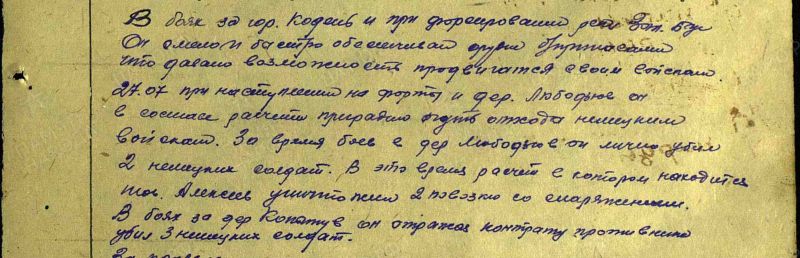 В боях за гор. Кодень и при форсировании реки Зап. Буг
Он смело и быстро обеспечивал орудие боеприпасами
что давало возможность продвигатся своим войскам.
27.07 при наступлении на форты и дер. Любодзюв он
в составе расчета преградил путь отхода немецким
войскам. За время боев в дер Любодзюв он лично убил
2 немецких солдат. В это время расчет в котором находится
тов. Алексеев уничтожил 2 повозки со снаряжением.
В боях за дер он отражая контратаку противника
убил 3 немецких солдат.